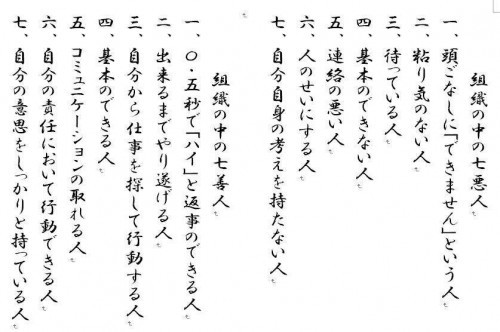 組織の中の七悪人
一、頭ごなしに「できません」という人
二、粘り気のない人
三、待っている人
四、基本のできない人
五、連絡の悪い人
六、人のせいにする人
七、自分自身の考えを持たない人
組織の中の七善人
一、〇・五秒で「ハイ」と返事のできる人
二、出来るまでやり遂げる人
三、自分から仕事を探して行動する人
四、基本のできる人
五、コミュニケーションの取れる人
六、自分の責任において行動できる人
七、自分の意思をしっかりと持っている人